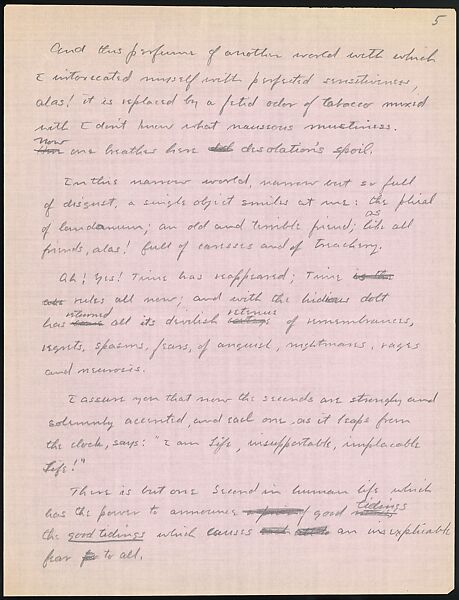 5
And this perfume of another world with which
I intoxicated myself with perfected sensitiveness,
alas! it is replaced by a fetid odor of tobacco mixed
with I don't know what nauseous mustiness.
now one breathes here desolation's spoil.
In this narrow world, narrow but so full
of disgust, a single object smiles at me: the phial
of laudanum; an old and terrible friend; as like all
friends, alas! full of caresses and of treachery.
Ah! Yes! Time has reappeared; Time is the
rules all now; and with the hideous dolt
has returned all its devilish retenue of remembrances,
regrets, spasms, fears, of anguish, nightmares, rages
and neurosis.
I assure you that now the seconds are strongly and
solemnly accented, and each one, as it leaps from
the clock, says: "I am Life, insupportable, implacable
Life!"
There is but one Second in human life which
has the power to announce good tidings
the good tidings which causes an inexplicable
fear to all.